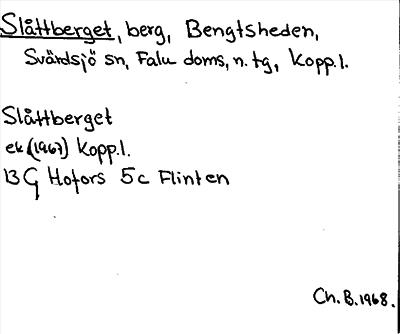 Slåttberget, berg, Bengtsheden,
Svärdsjö sn, Falu doms, n. tg, Kopp.l.
Slåttberget
ek (1967) Kopp.l.
13 G Hofors 5c Flinten
Ch. B. 1968.